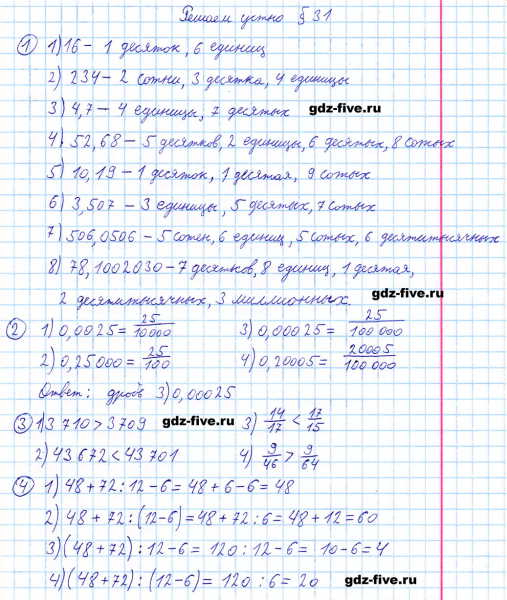 Решаем устно § 31
1 1) 16 – 1 десяток, 6 единиц
2) 234 – 2 сотни, 3 десятка, 4 единицы
3) 4,7 – 4 единицы, 7 десятых gdz-five.ru
4) 52,68 – 5 десятков, 2 единицы, 6 десятых, 8 сотых
5) 10,19 – 1 десяток, 1 десятая, 9 сотых
6) 3,507 – 3 единицы, 5 десятых, 7 сотых
7) 506,0506 – 5 сотен, 6 единиц, 5 сотых, 6 десятитысячных
8) 78,1002030 – 7 десятков, 8 единиц, 1 десятая,
2 десятитысячных, 3 миллионных. gdz-five.ru
2 1) 0,0025 = 25/10000 3) 0,00025 = 25/100 000
2) 0,25000 = 25/100 4) 0,20005 = 20005/100 000
Ответ: дробь 3) 0,00025
3 1) 3 710 > 3 709 gdz-five.ru 3) 14/17 < 17/15
2) 43 672 < 43 701 4) 9/46 > 9/64
4 1) 48 + 72 : 12 – 6 = 48 + 6 – 6 = 48
2) 48 + 72 : (12 – 6) = 48 + 72 : 6 = 48 + 12 = 60
3) (48 + 72) : 12 – 6 = 120 : 12 – 6 = 10 – 6 = 4
4) (48 + 72) : (12 – 6) = 120 : 6 = 20 gdz-five.ru